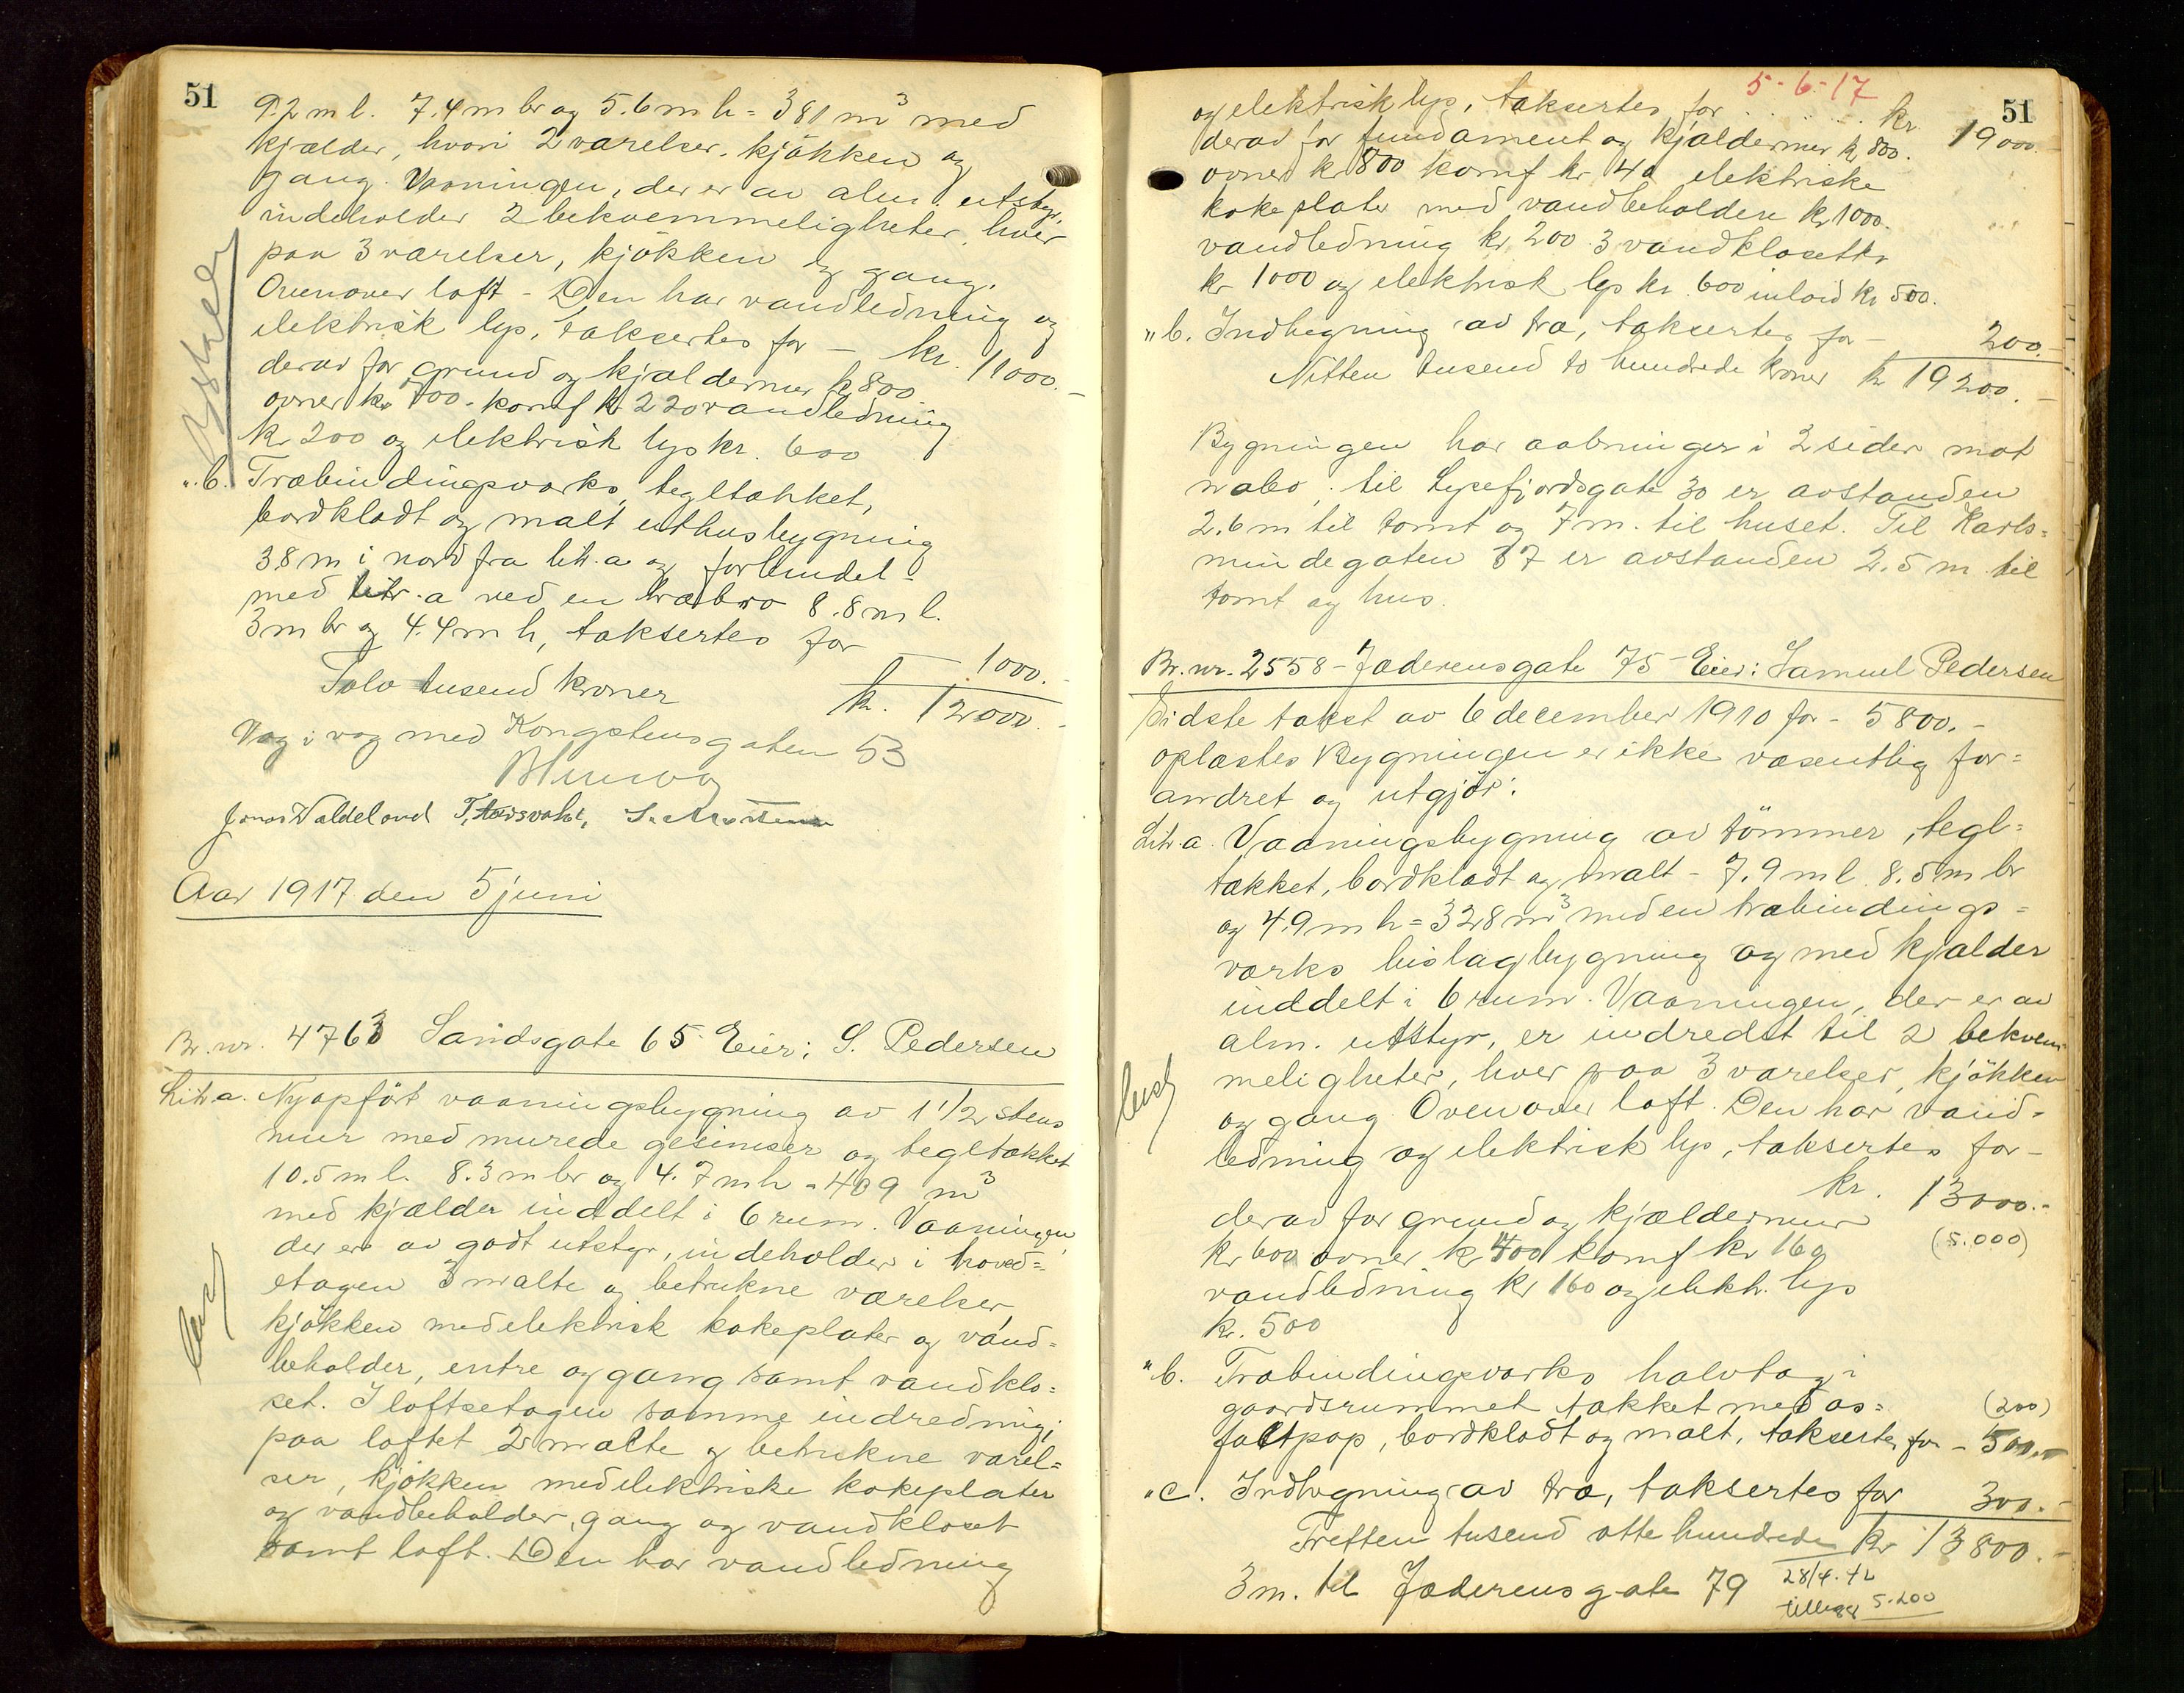 51
9.2 m l. 7.4 m br og 5.6 m h = 381 m3 med
kjælder, hvori 2 værelser, kjøkken og
gang. Vaaningen, der er av alm. utstyr,
indeholder 2 bekvemmeligheter, hver
paa 3 værelser, kjøkken og gang.
Ovenover loft - Den har vandledning og
elektrisk lys, taksertes for — kr. 11000.-
derav for grund og kjældermur kr 800
ovner kr 700. komf kr 220 vandledning
kr 200 og elektrisk lys kr. 600
" b. Træbindingsverks, tegltækket,
bordklædt og malt uthusbygning
3.8 m i nord fra litr. a og forbundet
med litr. a ved en træbro 8.8 m l.
3 m br og 4.4 m h, taksertes for — 1000.-
Tolv tusend kroner kr. 12000.-
Væg i væg med Kongstensgaten 53
Jonas Valdeland
Aar 1917 den 5 juni
Br. nr. 4763 Sandsgate 65 Eier: S. Pedersen
Litr a. Nyopført vaaningsbygning av 1 1/2 stens
mur med murede gesimser og tegltækket
10.5 m l. 8.3 m br og 4.7 m h = 409 m3
med kjælder inddelt i 6 rum. Vaaningen,
der er av godt utstyr, indeholder i hoved=
etagen 3 malte og betrukne værelser,
kjøkken med elektrisk kokeplater og vand=
beholder, entre og gang samt vandklo=
set. I loftsetagen samme indredning;
paa loftet 2 malte og betrukne værel=
ser, kjøkken med elektriske kokeplater
og vandbeholder, gang og vandkloset
samt loft. Den har vandledning
5-6-17
51
og elektrisk lys, taksertes for . . . . . . kr. 19000.-
derav for fundament og kjældermur kr 800.
ovner kr 800 komf kr 40 elektriske
kokeplater med vandbeholdere kr 1000.
vandledning kr 200 3 vandklosetter
kr 1000 og elektrisk lys kr. 600 inlaid kr 500.
" b. Indhegning av træ, taksertes for — 200.-
Nitten tusend to hundrede kroner kr 19200.-
Bygningen har aabninger i 2 sider mot
nabo; til Lysefjordsgate 30 er avstanden
2.6 m til tomt og 7 m. til huset. Til Karls=
mindegaten 37 er avstanden 2.5 m til
tomt og hus.
Br. nr. 2558 - Jæderensgate 75 - Eier: Samuel Pedersen
Sidste takst av 6 december 1910 for - 5800.-
oplæstes Bygningen er ikke væsentlig for=
andret og utgjør:
Litr. a. Vaaningsbygning av tømmer, tegl=
tækket, bordklædt og malt - 7.9 m l. 8.5 m br
og 4.9 m h = 328 m3 med en træbindings=
værks bislagbygning og med kjælder
inddelt i 6 rum. Vaaningen, der er av
alm. utstyr, er indredet til 2 bekvem=
meligheter, hver paa 3 værelser, kjøkken
og gang Ovenover loft. Den har vand=
ledning og elektrisk lys, taksertes for -
kr. 13000.-
derav for grund og kjældermur
(5.000)
kr 600 ovner kr 400 komf kr 160
vandledning kr 160 og elektr. lys
kr. 500
" b. Træbindingsværks halvtag i
gaardsrummet tækket med as=
(200)
faltpap, bordklædt og malt, taksertes for - 500.-
" c. Indhegning av træ, taksertes for 300.-
Tretten tusend otte hundrede kr 13800.-
3 m. til Jæderensgate 79
28/4.42
tillegg 5.200